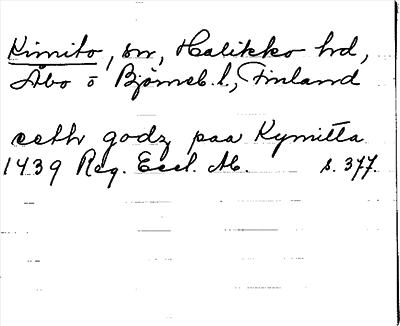 Kimito, sn, Halikko hd,
Åbo o Björneb. l., Finland
eeth godz paa Kymitta
1439 Reg. Eccl. Ab. s. 377.